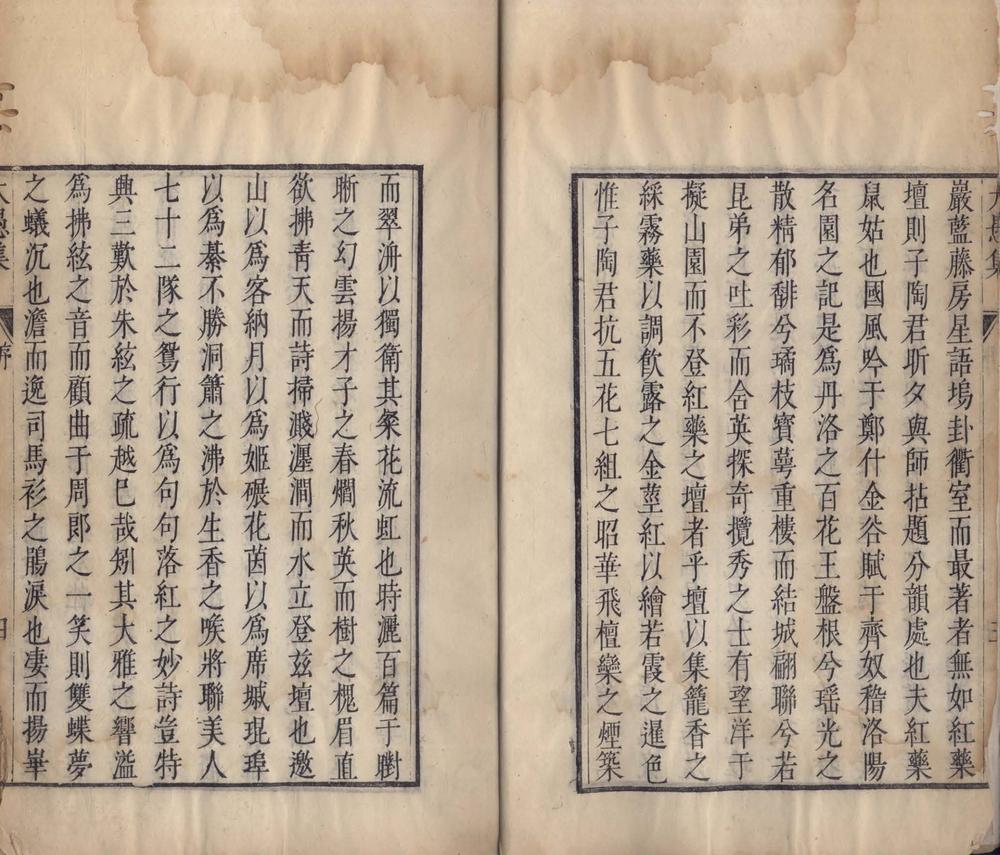 巖藍藤房星語塢卦衢室而最著者無如紅藥
壇則子陶君昕夕與師拈題分韻處也夫紅藥
鼠姑也國風吟于鄭什金谷賦于齊奴稽洛陽
名園之記是為丹洛之百花王盤根兮瑶光之
散精郁馡兮璚枝寶萼重樓而結城翩聯兮若
昆弟之吐彩而含英探奇攬秀之士有望洋于
擬山園而不登紅藥之壇者乎壇以集籠香之
綵霧藥以調飲露之金莖紅以繪若霞之暹色
惟子陶君抗五花七組之昭華飛檀欒之煙築
而翠洀以獨衛其粲花流虹也時灑百篇于
晰之幻雲揚才子之春燗秋英而樹之槐眉直
欲拂青天而詩掃濺渥澗而水立登兹壇也邀
山以為客納月以為姬碾花茵以為席城琨琸
以為綦不勝洞簫之沸於生香之喉將聯美人
七十二隊之鴛行以為句句落紅之妙詩豈特
興三歎於朱絃之疏越巳哉矧其大雅之響溢
為拂絃之音而顧曲于周郎之一笑則雙蝶夢
之蟻沉也澹而逸司馬衫之鵑淚也淒而揚
序